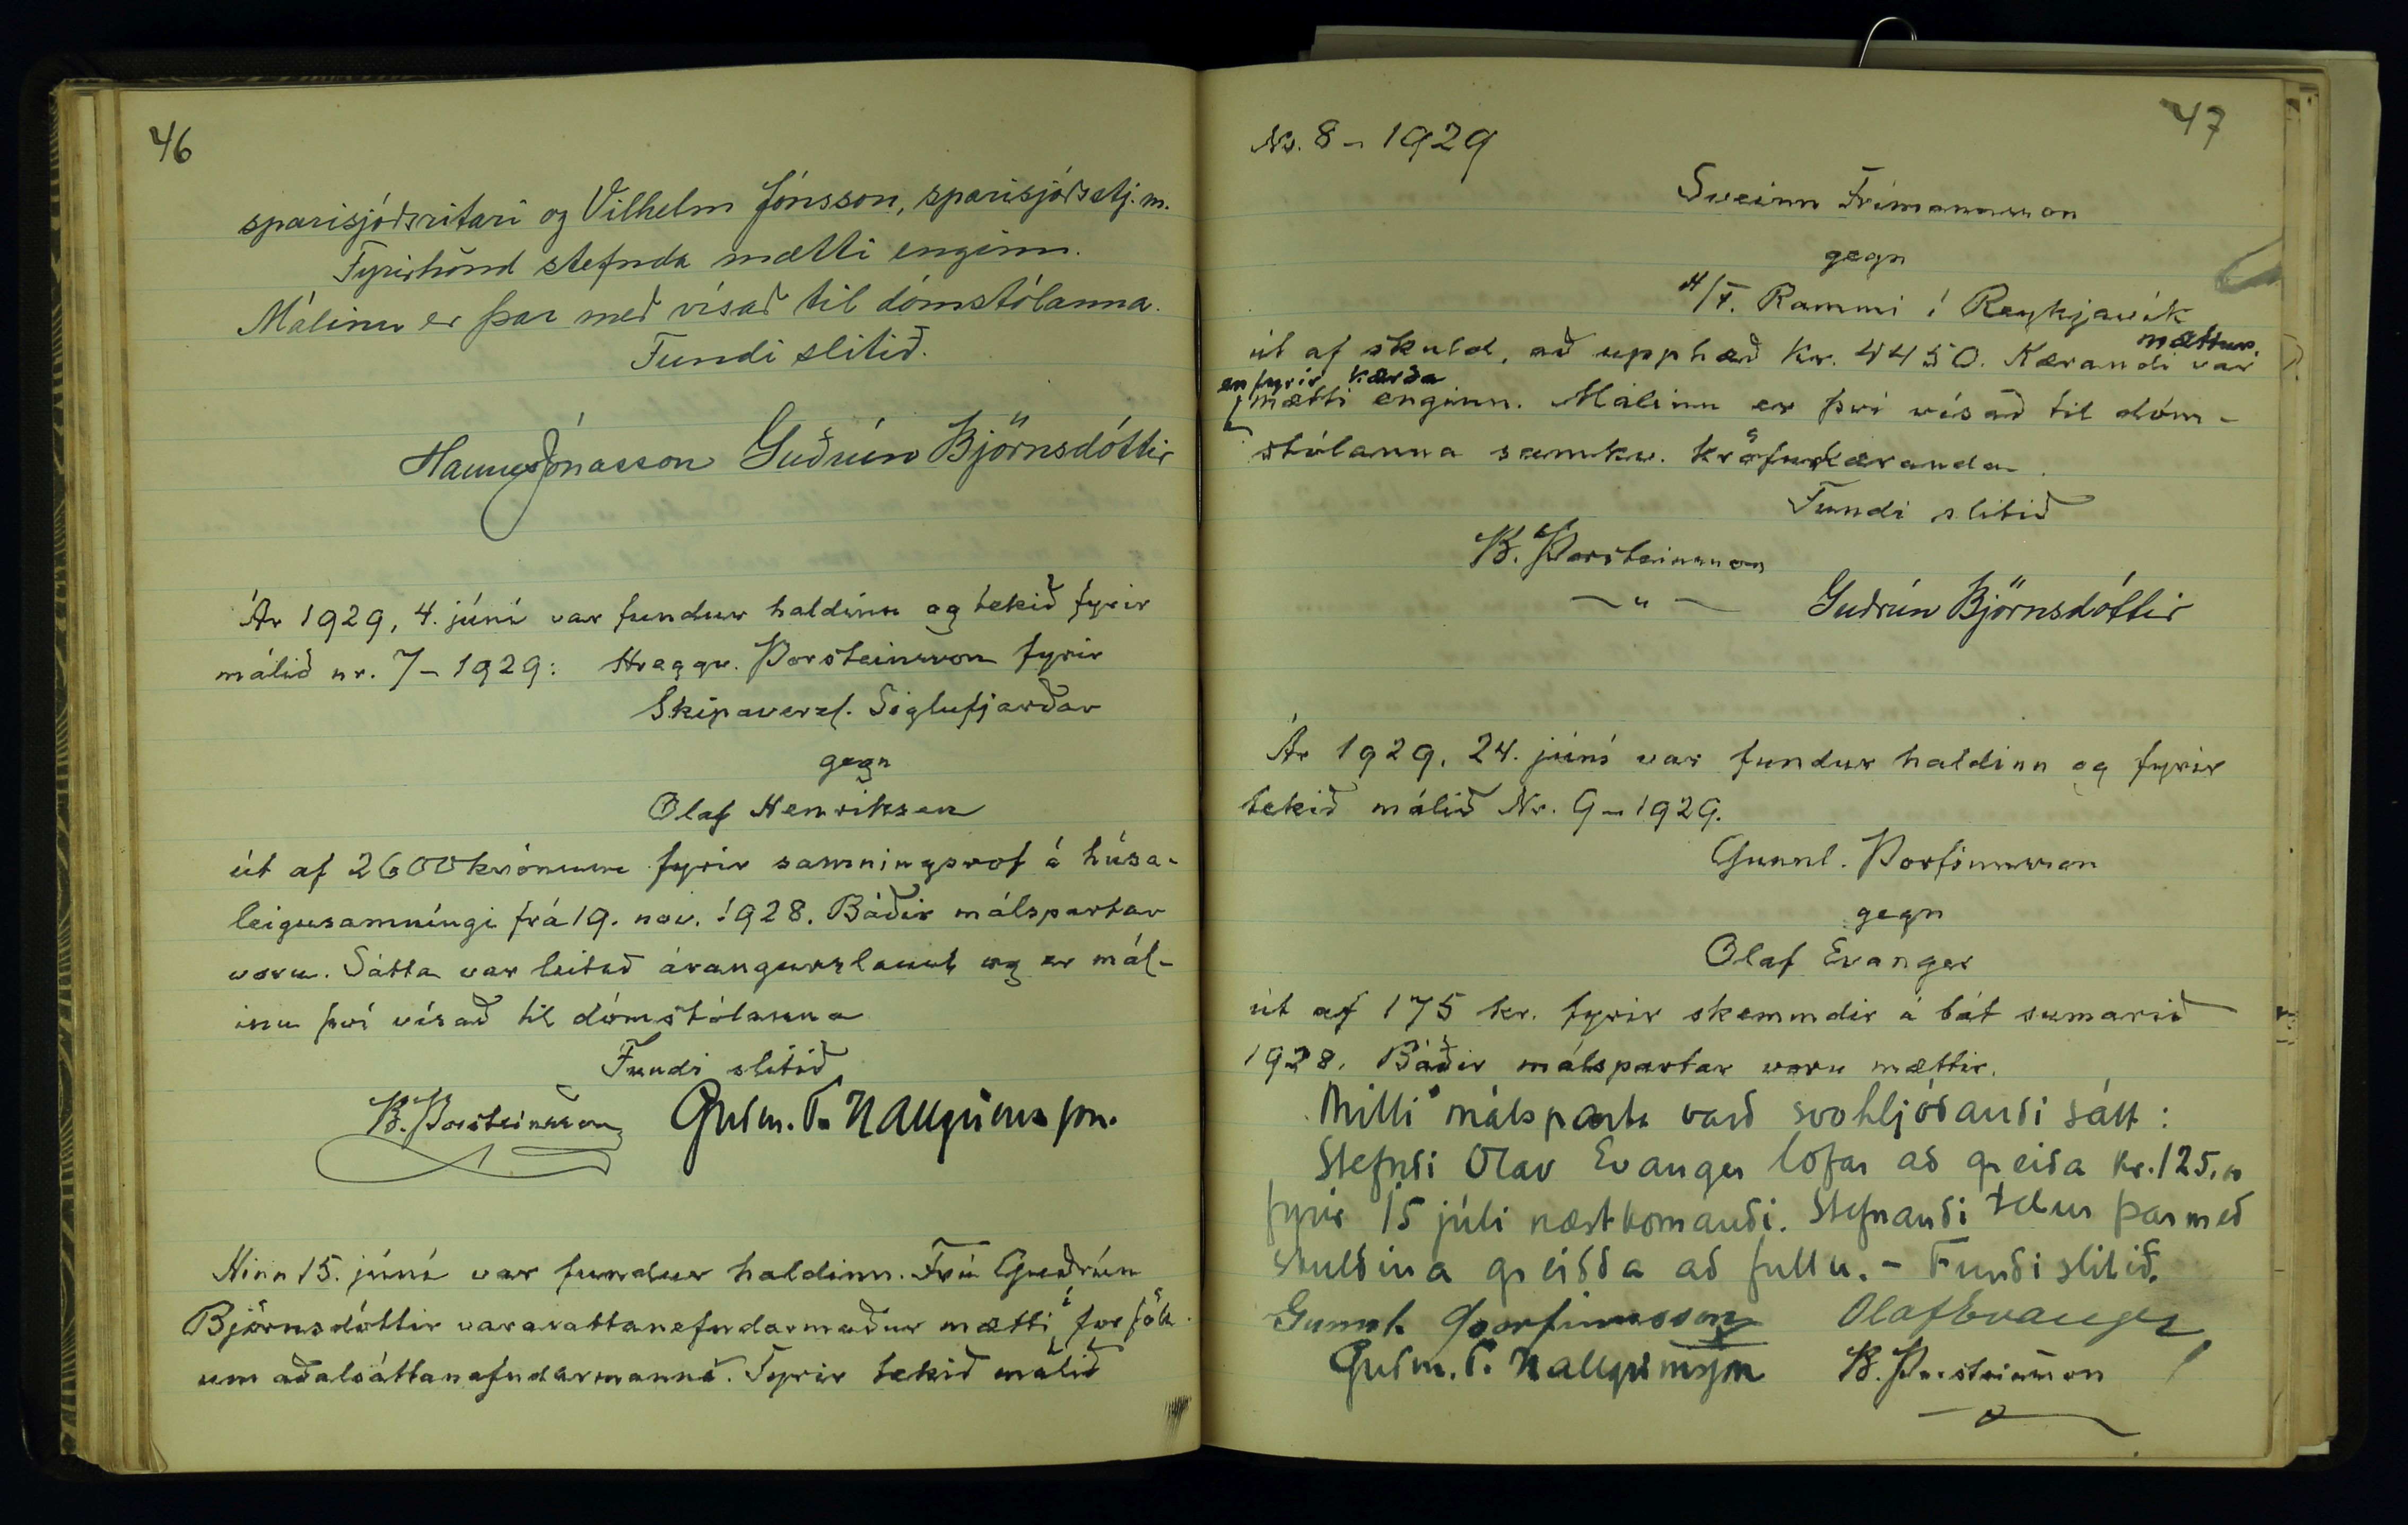 46
sparisjóðsritari og Vilhelm Jónsson, sparisjóðsstj. m.
Fyrirhönd stefnda mætti enginn.
Málinu er þar með vísað til dómstólanna.
Fundi slitið.
Hannes Jónasson Guðrún Björnsdóttir
Ár 1929, 4. júní var fundur haldinn og tekið fyrir
málið nr. 7 - 1929: Hreggv. Þorsteinsson fyrir
Skipaverzl. Siglufjarðar
gegn
Olaf Henriksen
út af 2600 krónum fyrir samningsrof á húsa-
leigusamningi frá 19. nov. 1928. Báðir málspartar
voru. Sátta var leitað árangurslaust og er mál-
inu því vísað til dómstólanna
Fundi slitið
B. Þorsteinsson Guðm. T. Hallgrímsson.
Hinn 15. júní var fundur haldinn. Frú Guðrún
Björnsdóttir varasáttanefndarmaður mætti í forföll-
um aðalsáttanefndarmanns. Fyrir tekið málið
47
No. 8 - 1929
Sveinn Frímannsson
gegn
H/F. Rammi í Reykjavík
út af skuld, að upphæð kr. 4450. Kærandi var mættur.
en fyrir kærða
mætti enginn. Málinu er því vísað til dóm-
stólanna samkv. kröfu kæranda.
Fundi slitið
B. Þorsteinsson
— " — Guðrún Björnsdóttir
Ár 1929, 24. júní var fundur haldinn og fyrir
tekið málið Nr. 9 - 1929.
Gunnl. Þorfinnsson
gegn
Olaf Evanger
út af 175 kr. fyrir skemmdir á bát sumarið
1928. Báðir málspartar voru mættir.
Milli málsparta varð svohljóðandi sátt:
Stefndi Olav Evanger lofar að greiða kr. 125,00
fyrir 15 júlí næstkomandi. Stefnandi telur þar með
skuldina greidda að fullu. - Fundi slitið.
Gunnl. Þorfinnsson Olaf Evanger
Guðm. T. Hallgrímsson B. Þorsteinsson